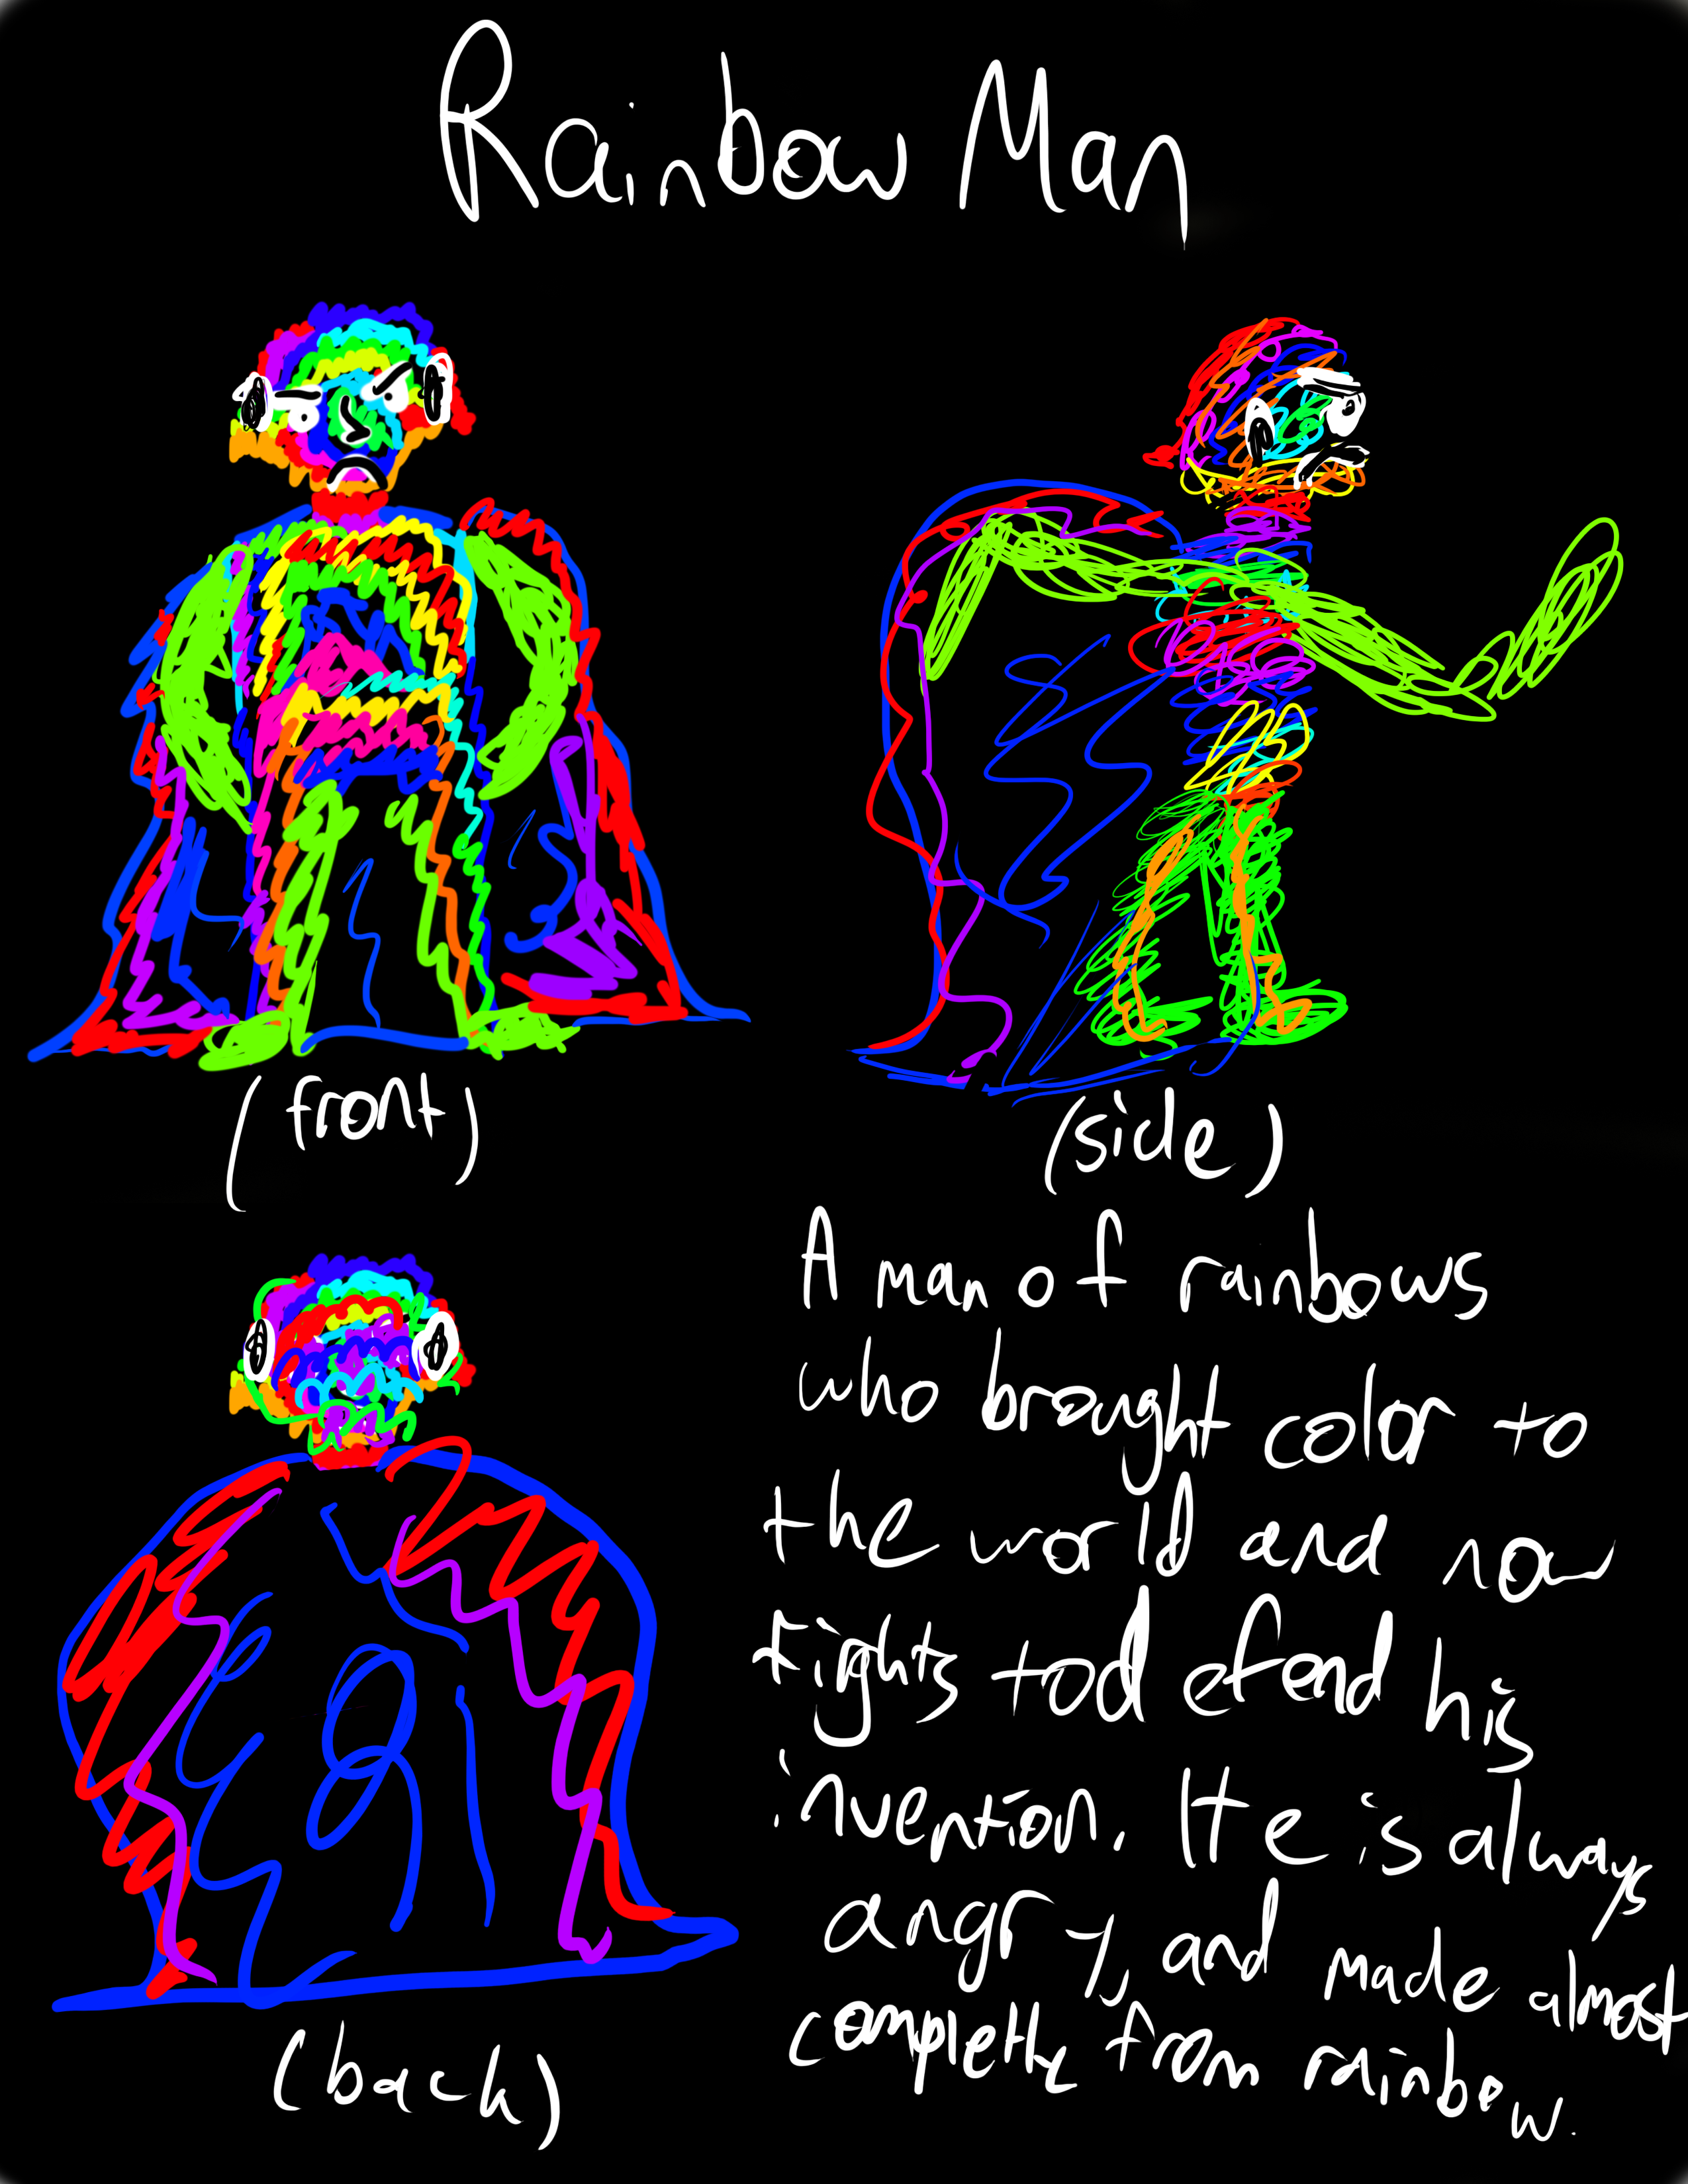 Rainbow Man
(front)
(side)
A man of rainbows
who brought color to
the world and now
fights to defend his
invention. He is always
angry, and made almost
completly from rainbow.
(back)